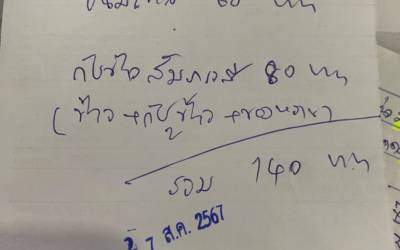 60 บาท
กับข้าว สัมภเวสี 80 บาท
(ข้าว+กับข้าว+ของหวาน)
รวม 140 บาท
7 ส.ค. 2567